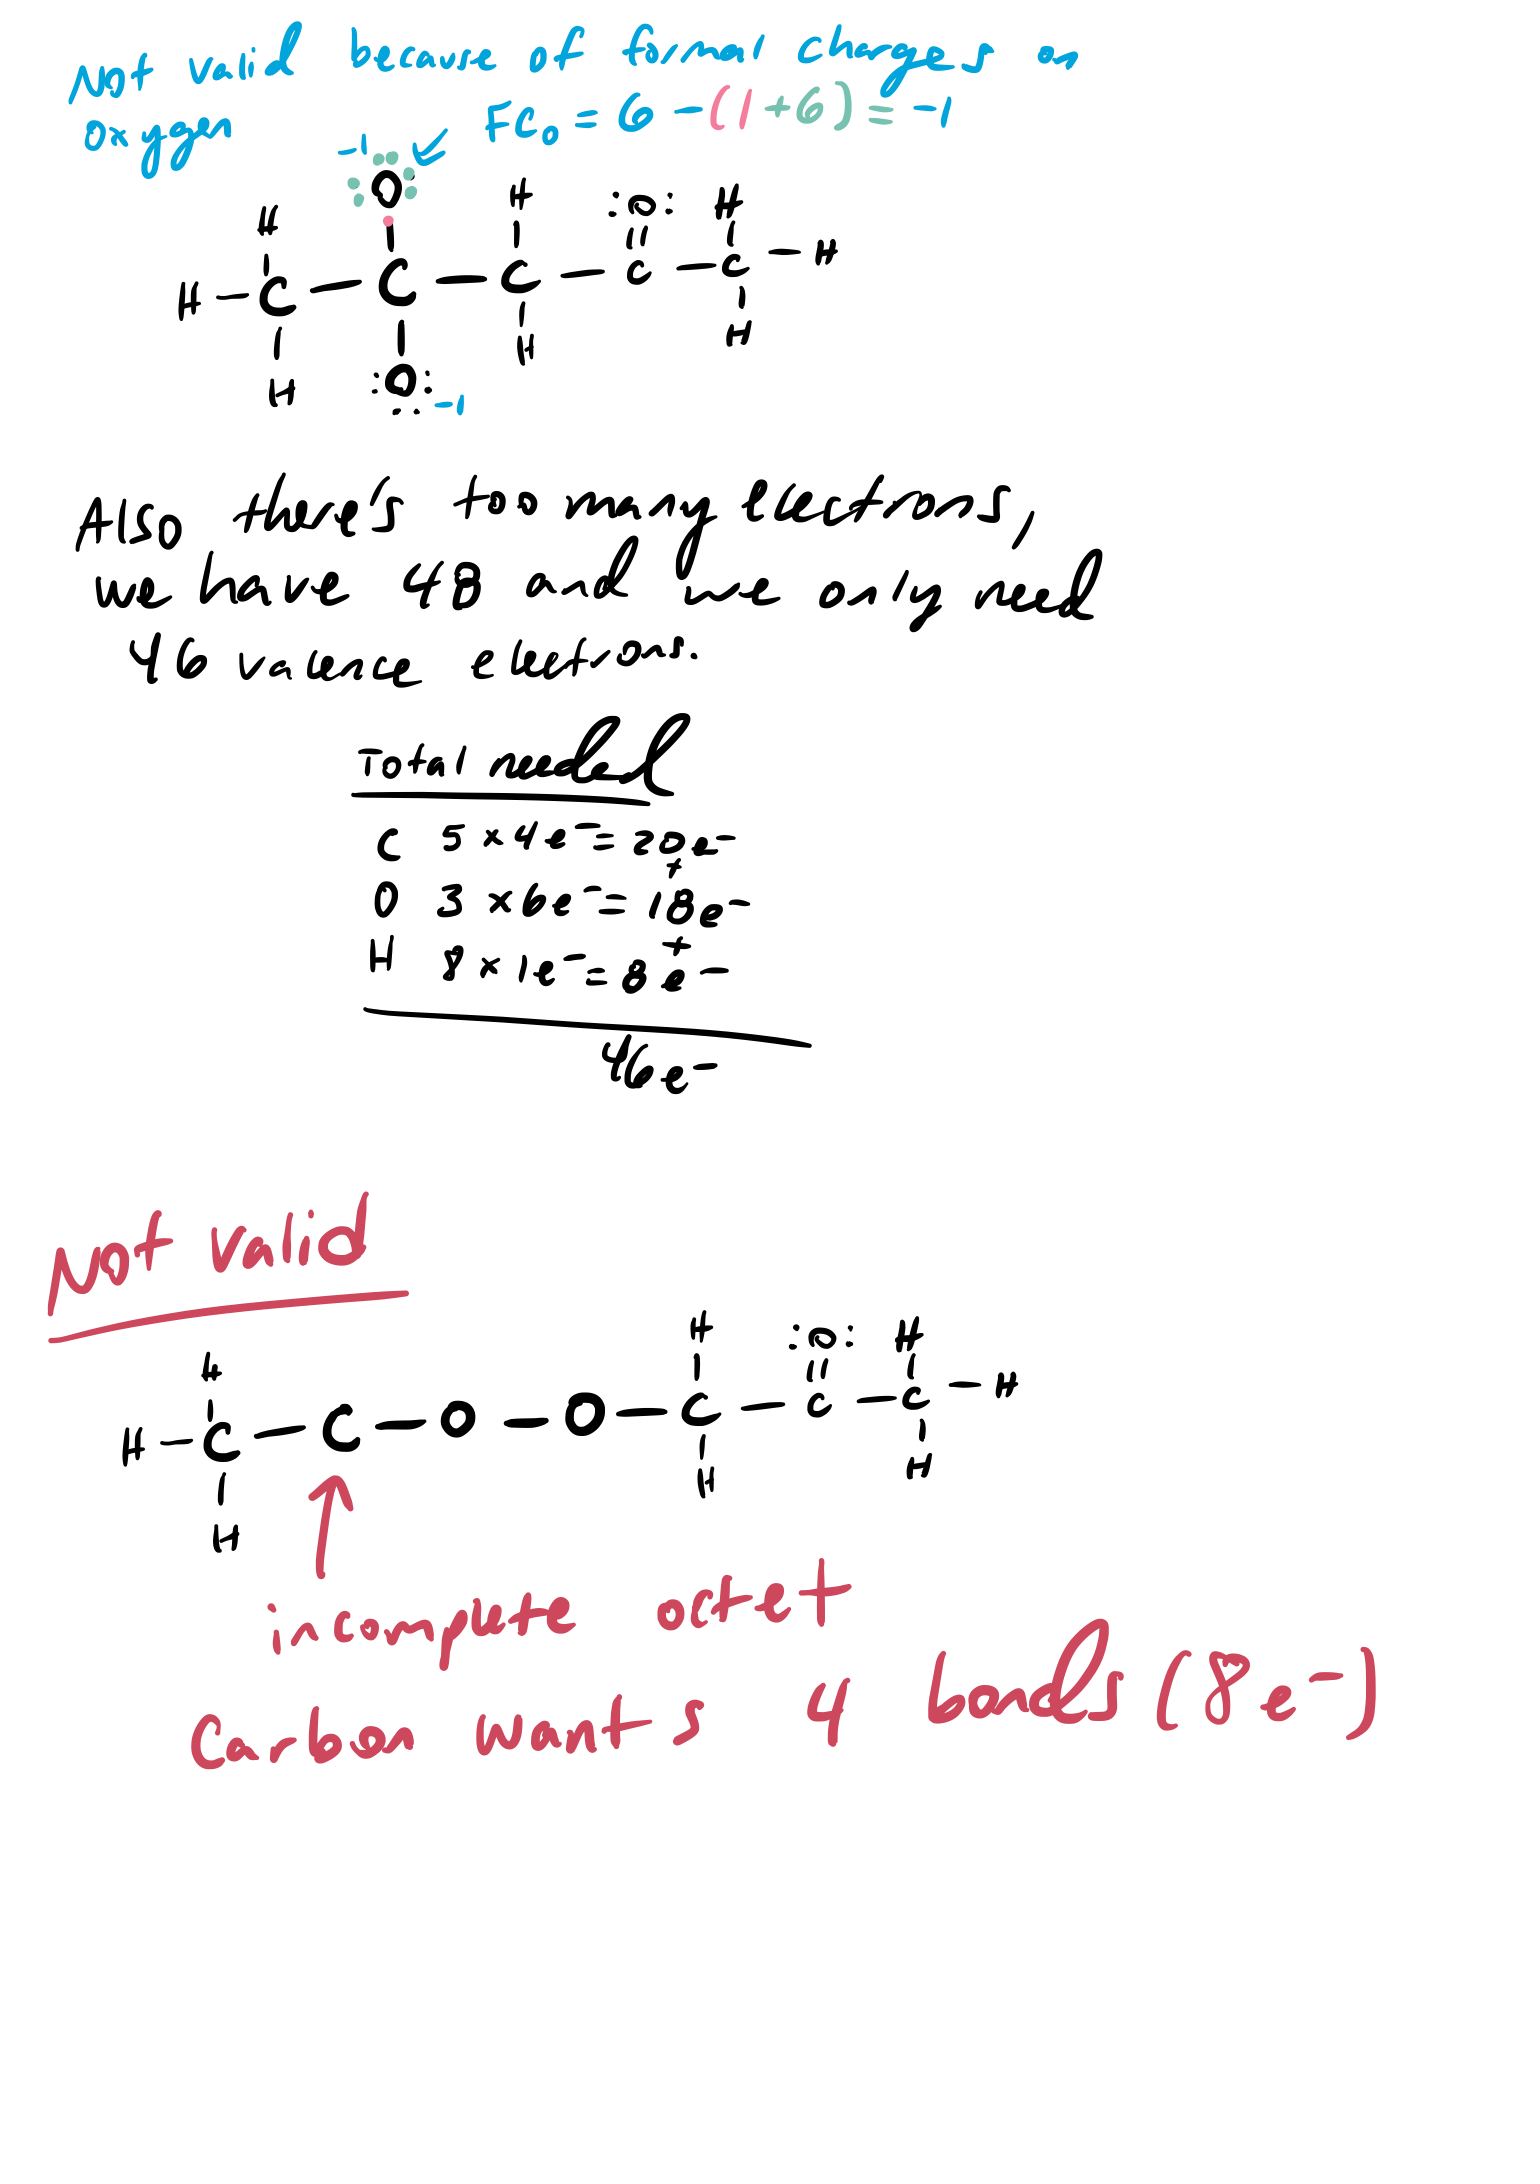 Not valid because of formal charges on
oxygen FCo = 6 - (1+6) = -1
-1
H O H :O: H
H - C - C - C - C - C - H
H :O: H H
-1
Also there's too many electrons,
we have 48 and we only need
46 valence electrons.
Total needed
C 5 × 4e⁻ = 20e⁻
+
O 3 × 6e⁻ = 18e⁻
+
H 8 × 1e⁻ = 8e⁻
46e⁻
Not valid
H H :O: H
H - C - C - O - O - C - C - C - H
H H H
incomplete octet
Carbon wants 4 bonds (8e⁻)